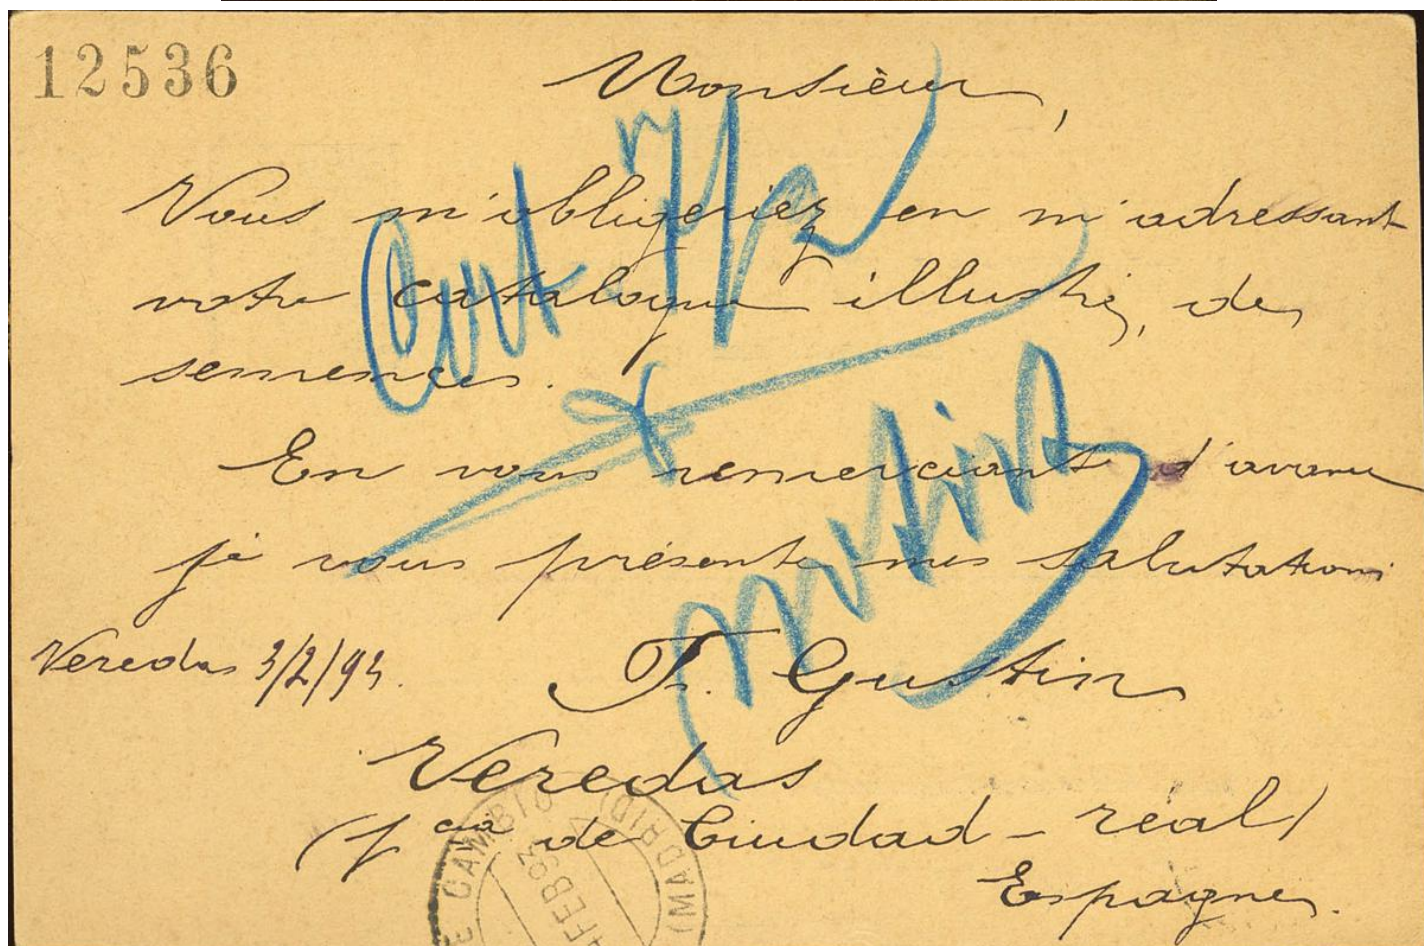 12536
Monsieur,
Vous m'obligeriez en m'adressant
votre catalogue illustré, de
semences.
En vous remerciant d'avance
je vous présente mes salutations
Veredas 3/2/93.
F. Gustin
Veredas
(Pcia de Ciudad-réal)
Espagne.
E CAMBIO
(MADRID)
4 FEB 93